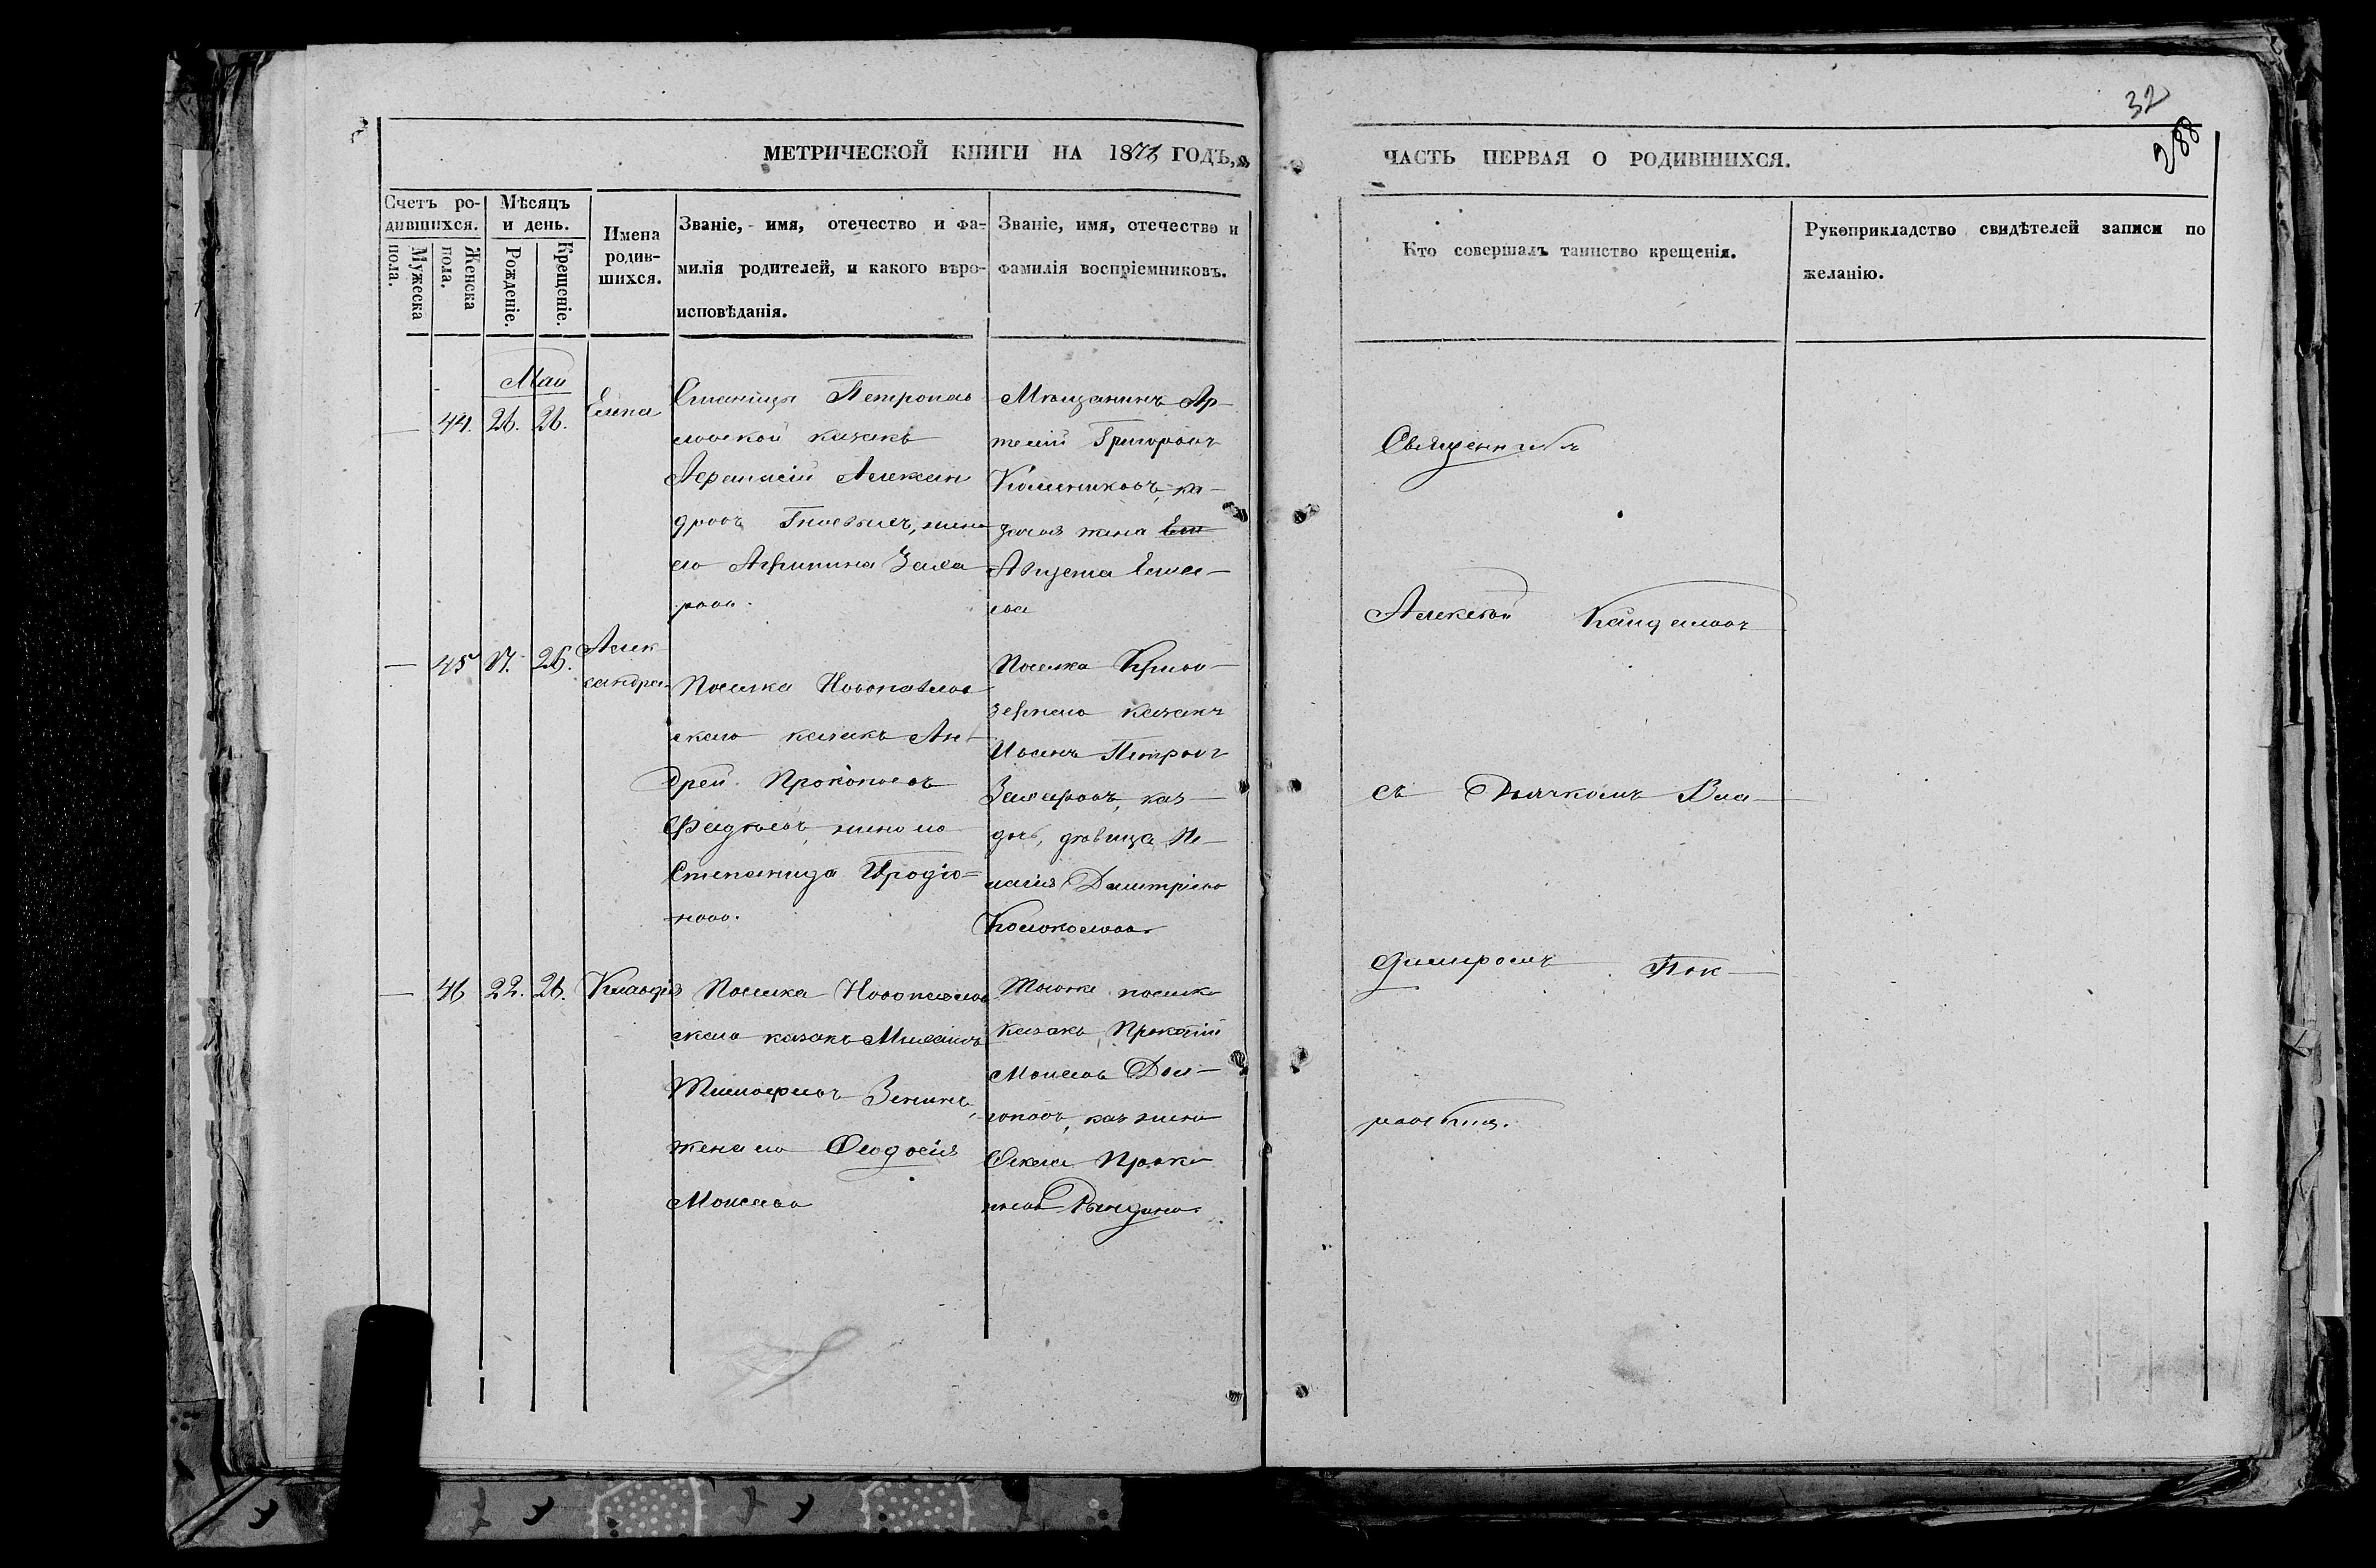 32
288
МЕТРИЧЕСКОЙ КНИГИ НА 1876 ГОДЪ,
ЧАСТЬ ПЕРВАЯ О РОДИВШИХСЯ.
Счетъ ро-
дившихся.
Мужеска
пола.
Женска
пола.
Мѣсяцъ
и день.
Рожденіе.
Крещеніе.
Имена
родив-
шихся.
Званіе, имя, отечество и фа-
милія родителей, и какого вѣро-
исповѣданія.
Званіе, имя, отечество и
фамилія воспріемниковъ.
Кто совершалъ таинство крещенія.
Рукоприкладство свидѣтелей записи по
желанію.
Май
— 44. 26. 26. Елена
Станицы Петропав
ловской казакъ
Афанасій Алексан
дровъ жена
его Агрипина Заха
рова.
Мѣщанинъ Ар
темій Григоровъ
ка-
зачья жена
Августа
— 45 17. 26. Алек
сандра
Поселка Новопавлов
скаго казакъ Ан
дрей Прокопьевъ
жена его
Степанида Иродіо=
нова.
Поселка Криво
зернаго казакъ
Иванъ Петровъ
Захаровъ, каз
дочь, дѣвица Пе
лагія Дмитріева
Колоколова.
— 46 22. 26. Клавдія
Поселка Новопавлов
скаго казакъ Михаилъ
Тимофеевъ Зенинъ,
жена его Феодосія
Моисеева
Тогоже поселка
казакъ Прокопій
Моисеевъ Дол
гоповъ, каз жена
Рындина.
Священникъ
Алексѣй
съ Дьячкомъ Вла
димиромъ Пок
ровскимъ.